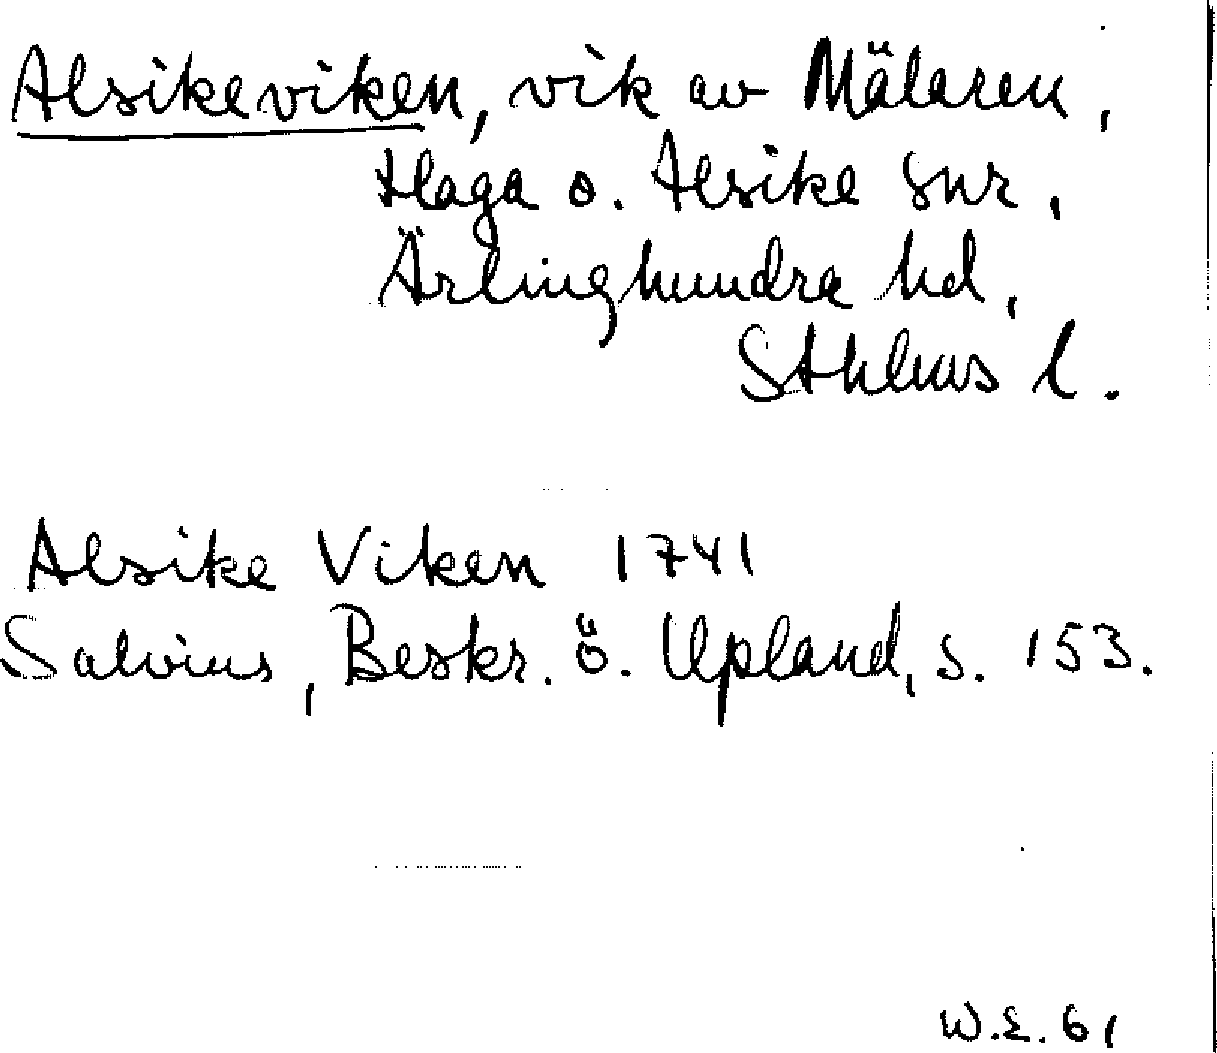 Alsikeviken, vik av Mälaren,
Haga o. Alsike snr,
Ärlinghundra hd,
Sthlms l.
Alsike Viken 1741
Salvius, Beskr. ö. Upland, s. 153.
W.E. 61